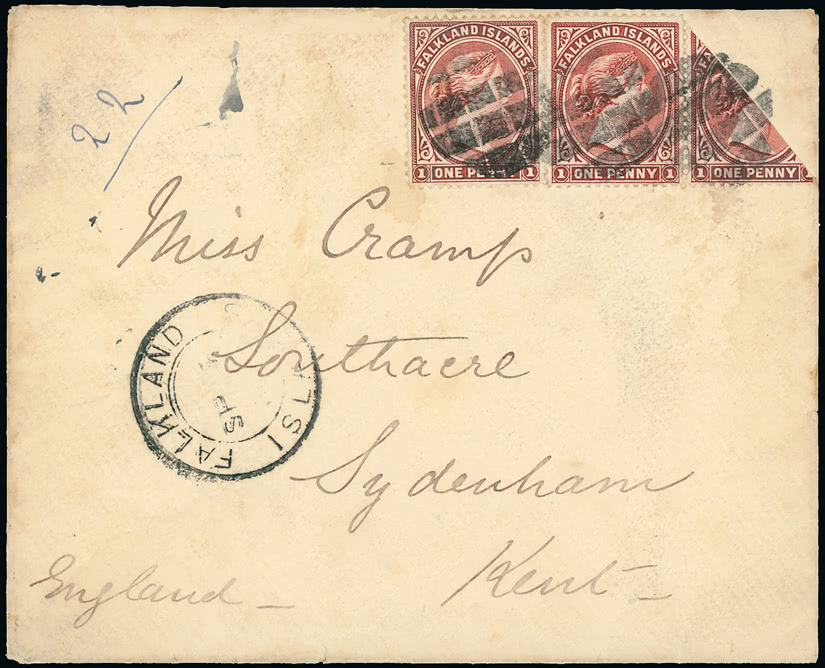 FALKLAND ISLANDS FALKLAND ISLANDS FA
1 ONE PENNY 1 1 ONE PENNY 1 1 ONE PENNY
22
Miss Cramp
Southacre
Sydenham
Kent
England
FALKLAND ISL
SP